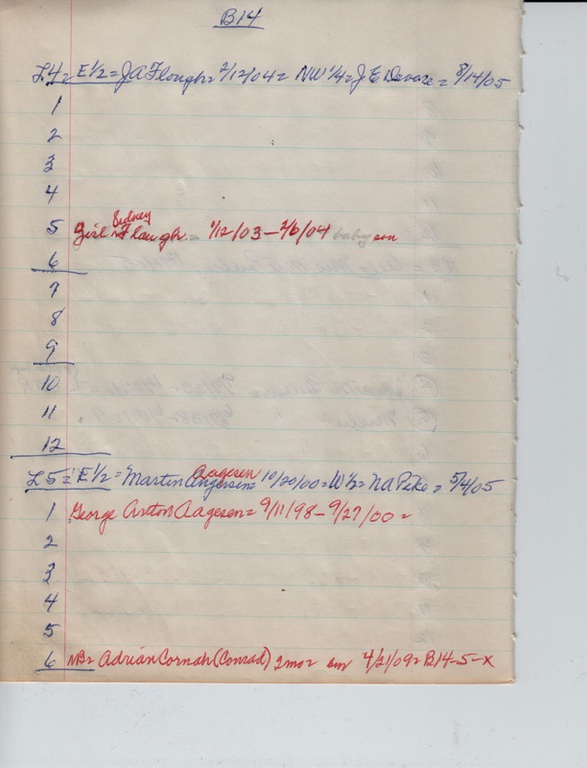 B14
L4 = E 1/2 = J A Flough = 2/12/04 = NW 1/4 = J E Devore = 8/14/05
1
2
3
4
Sidney
5 Girl Flaugh = 1/12/03 – 2/6/04 baby son
6
7
8
9
10
11
12
Aagesen
L5 = E 1/2 = Martin Angersen = 10/20/00 = W 1/2 = N A Peke = 5/4/05
1 George Anton Aagesen = 9/11/98 – 9/27/00 =
2
3
4
5
6 NB = Adrian Cornah (Conrad) 2mo = 4/21/09 = B14-5-X